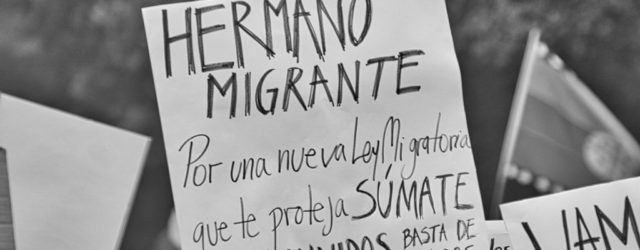 HERMANO
MIGRANTE
Por una nueva Ley Migratoria
que te proteja SÚMATE
BASTA DE